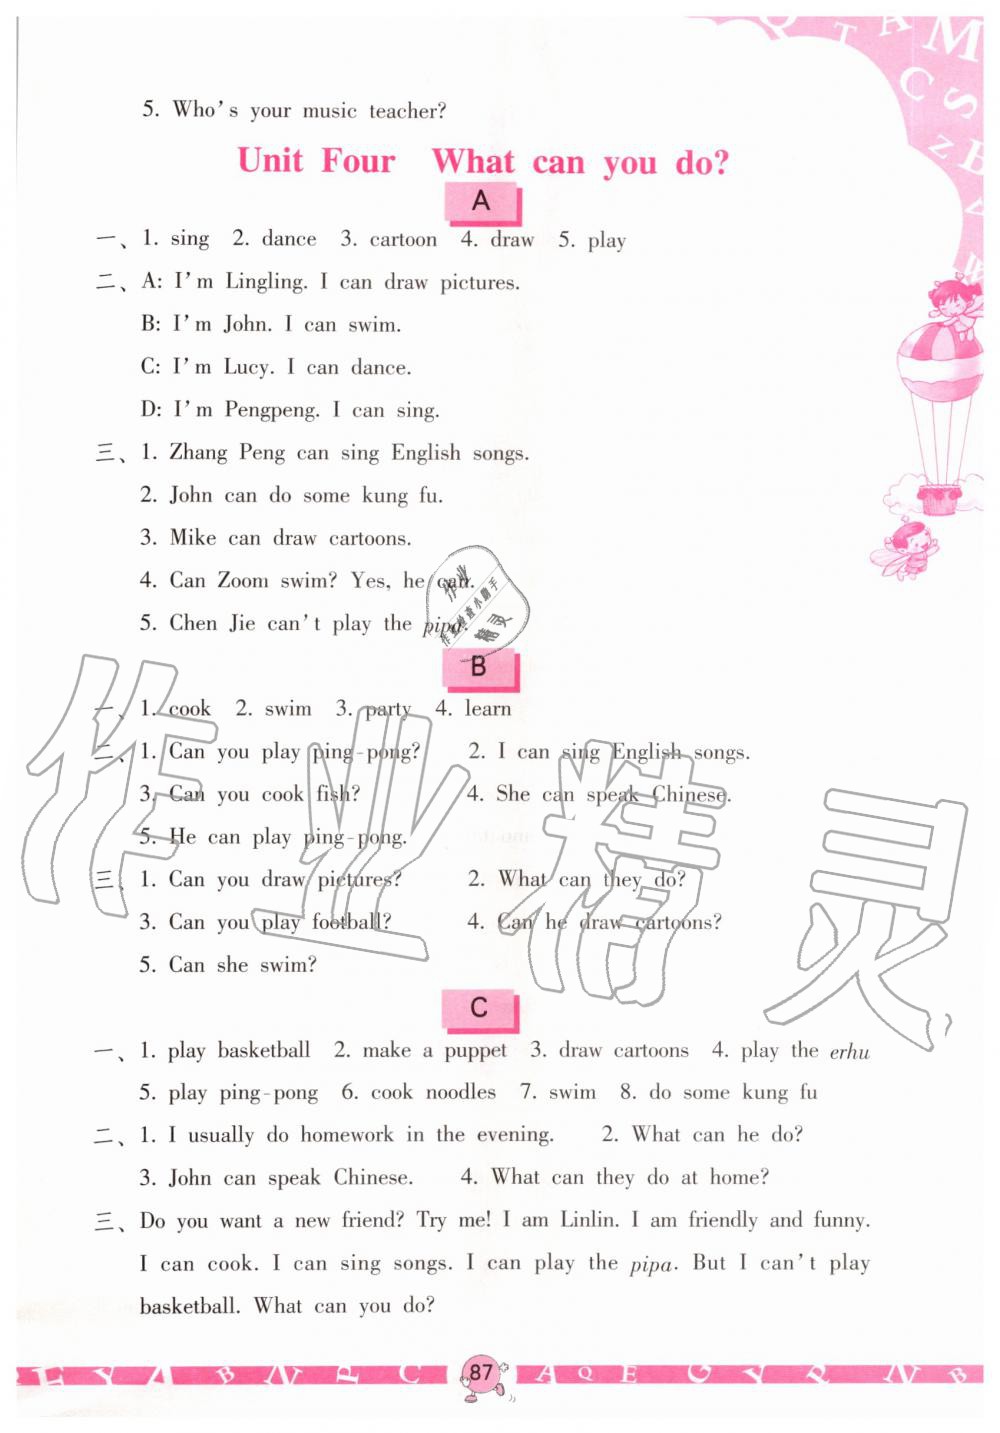 5. Who's your music teacher?
Unit Four What can you do?
A
一、1. sing 2. dance 3. cartoon 4. draw 5. play
二、A: I'm Lingling. I can draw pictures.
B: I'm John. I can swim.
C: I'm Lucy. I can dance.
D: I'm Pengpeng. I can sing.
三、1. Zhang Peng can sing English songs.
2. John can do some kung fu.
3. Mike can draw cartoons.
4. Can Zoom swim? Yes, he can.
5. Chen Jie can't play the pipa.
B
一、1. cook 2. swim 3. party 4. learn
二、1. Can you play ping-pong? 2. I can sing English songs.
3. Can you cook fish? 4. She can speak Chinese.
5. He can play ping-pong.
三、1. Can you draw pictures? 2. What can they do?
3. Can you play football? 4. Can he draw cartoons?
5. Can she swim?
作业精灵
C
一、1. play basketball 2. make a puppet 3. draw cartoons 4. play the erhu
5. play ping-pong 6. cook noodles 7. swim 8. do some kung fu
二、1. I usually do homework in the evening. 2. What can he do?
3. John can speak Chinese. 4. What can they do at home?
三、Do you want a new friend? Try me! I am Linlin. I am friendly and funny.
I can cook. I can sing songs. I can play the pipa. But I can't play
basketball. What can you do?
87